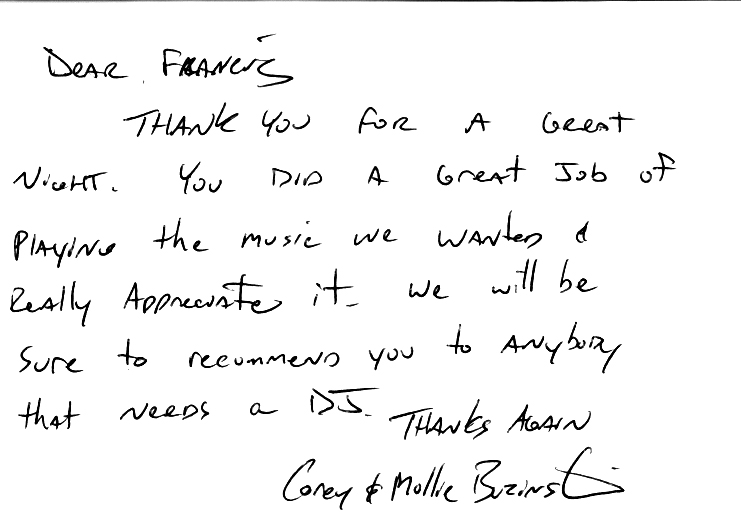 Dear Francis
Thank you for a Great
Night. You DID A Great Job of
Playing the music we wanted &
Really Appreciate it. We will be
sure to recommend you to Anybody
that needs a DJ.
Thanks Again
Corey & Mollie